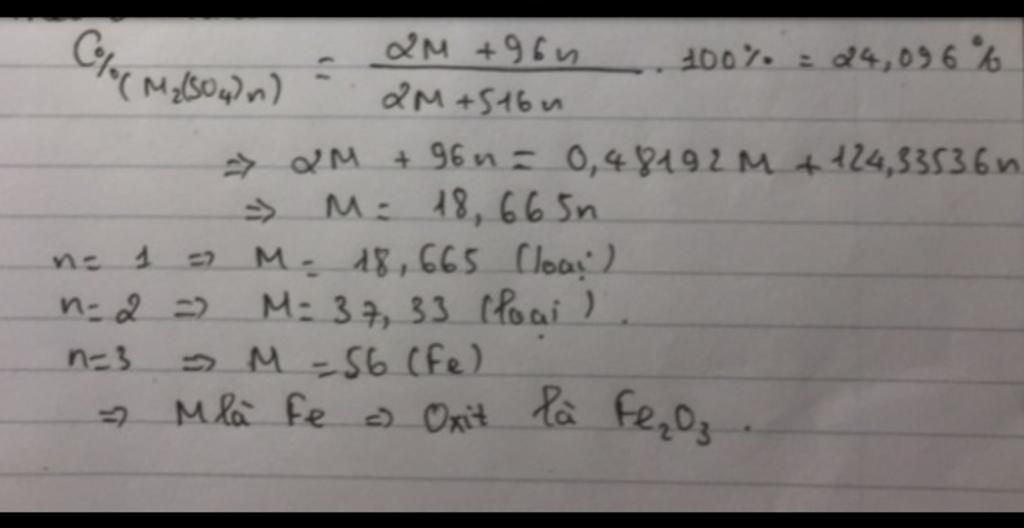 C%(M₂(SO₄)n) = (2M + 96n)/(2M + 516n) . 100% = 24,096%
=> 2M + 96n = 0,48192M + 124,33536n
=> M = 18,665n
n = 1 => M = 18,665 (loại)
n = 2 => M = 37,33 (loại).
n = 3 => M = 56 (Fe)
=> M là Fe => Oxit là Fe₂O₃.